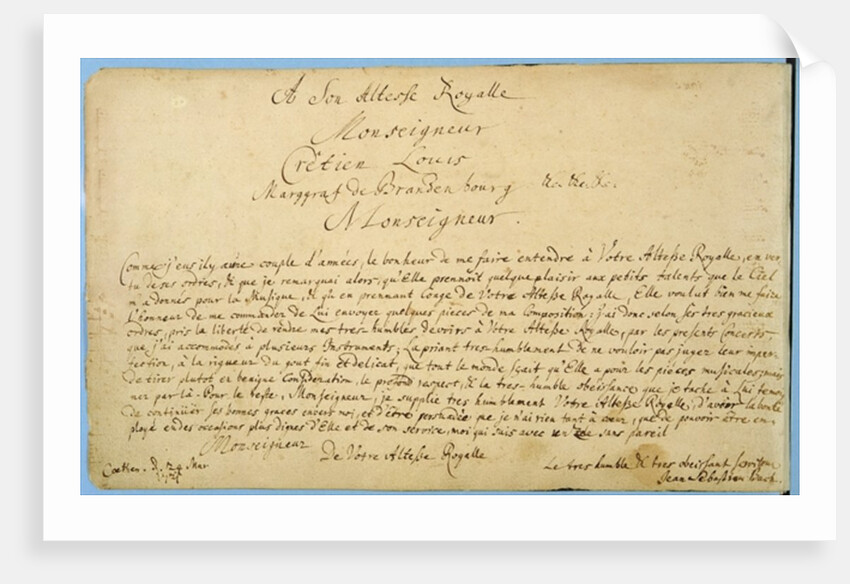 A Son Altesse Royalle
Monseigneur
Crêtien Louis
Marggraf de Brandenbourg &c. &c. &c.
Monseigneur.
Comme j'eus il y a une couple d'années, le bonheur de me faire entendre à Vôtre Altesse Royalle, en ver
tu de ses ordres, & que je remarquai alors, qu'Elle prennoit quelque plaisir aux petits talents que le Ciel
m'a donnés pour la Musique, & qu'en prennant Conge de Votre Altesse Royalle, Elle voulut bien me faire
l'honneur de me commander de Lui envoyer quelques pieces de ma Composition: j'ai donc selon ses tres gracieux
ordres, pris la liberté de rendre mes tres-humbles devoirs à Vôtre Altesse Royalle, par les presents Concerts,
que j'ai accommodés à plusieurs Instruments; La priant tres-humblement de ne vouloir pas juger leur imper
fection, à la rigueur du gout fin et delicat, que tout le monde sçait qu'Elle a pour les piéces musicales; mais
de tirer plutot en benigne Consideration, le profond respect, & la tres-humble obéissance que je tache à Lui temoi
ner par là. Pour le reste, Monseigneur, je supplie tres humblement Votre Altesse Royalle, d'avoir la bonté
de continüer ses bonnes graces envers moi, et d'être persuadée que je n'ai rien tant à cœur, que de pouvoir être em
ployé en des occasions plus dignes d'Elle et de son service, moi qui suis avec un zele sans pareil
Monseigneur
De Votre Altesse Royalle
Coethen. d. 24 Mar
1721
Le tres humble & tres obeissant serviteur
Jean Sebastien Bach.